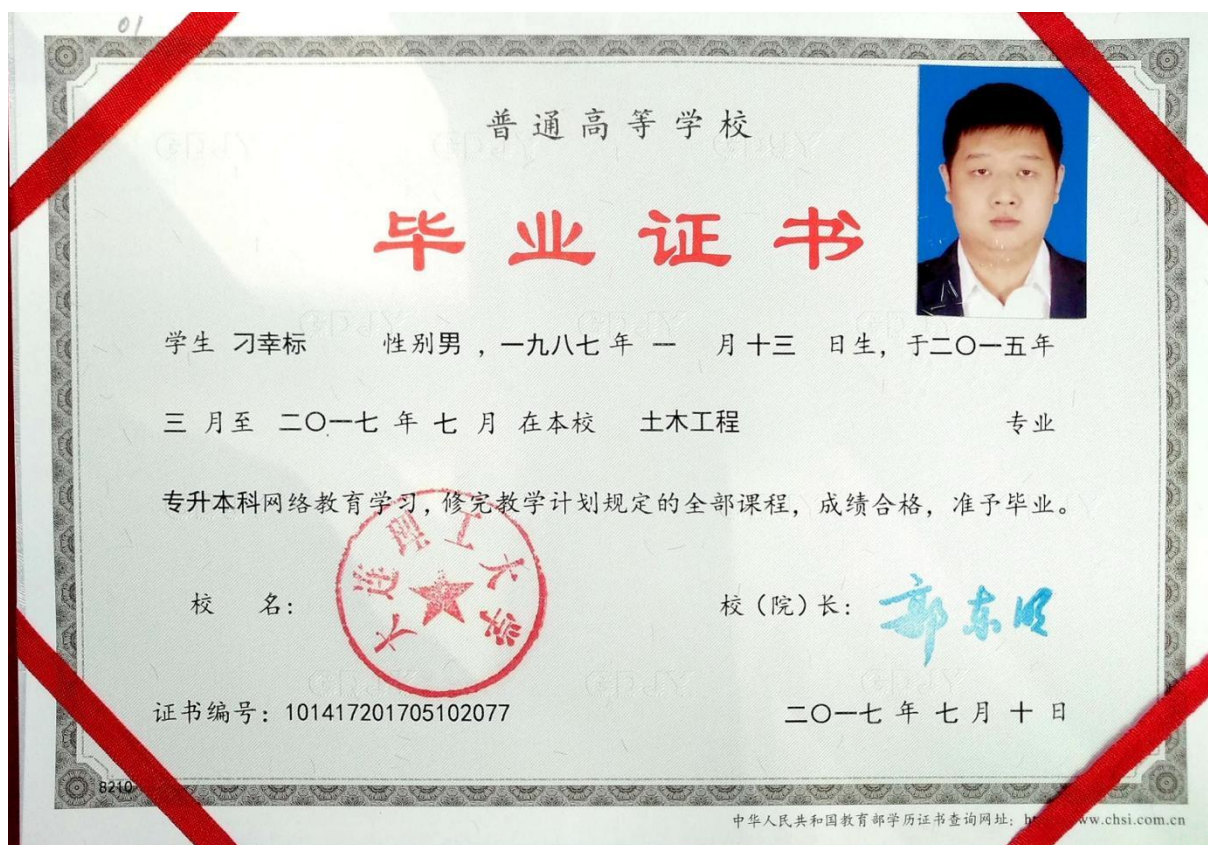 01
普通高等学校
毕业证书
学生 刁幸标 性别男,一九八七年 一 月十三 日生,于二〇一五年
三 月至 二〇一七 年 七 月 在本校 土木工程 专业
专升本科网络教育学习,修完教学计划规定的全部课程,成绩合格,准予毕业。
大连理工大学
校 名: 校(院)长: 郭东明
证书编号:101417201705102077 二〇一七 年 七 月 十 日
8210
中华人民共和国教育部学历证书查询网址: ww.chsi.com.cn